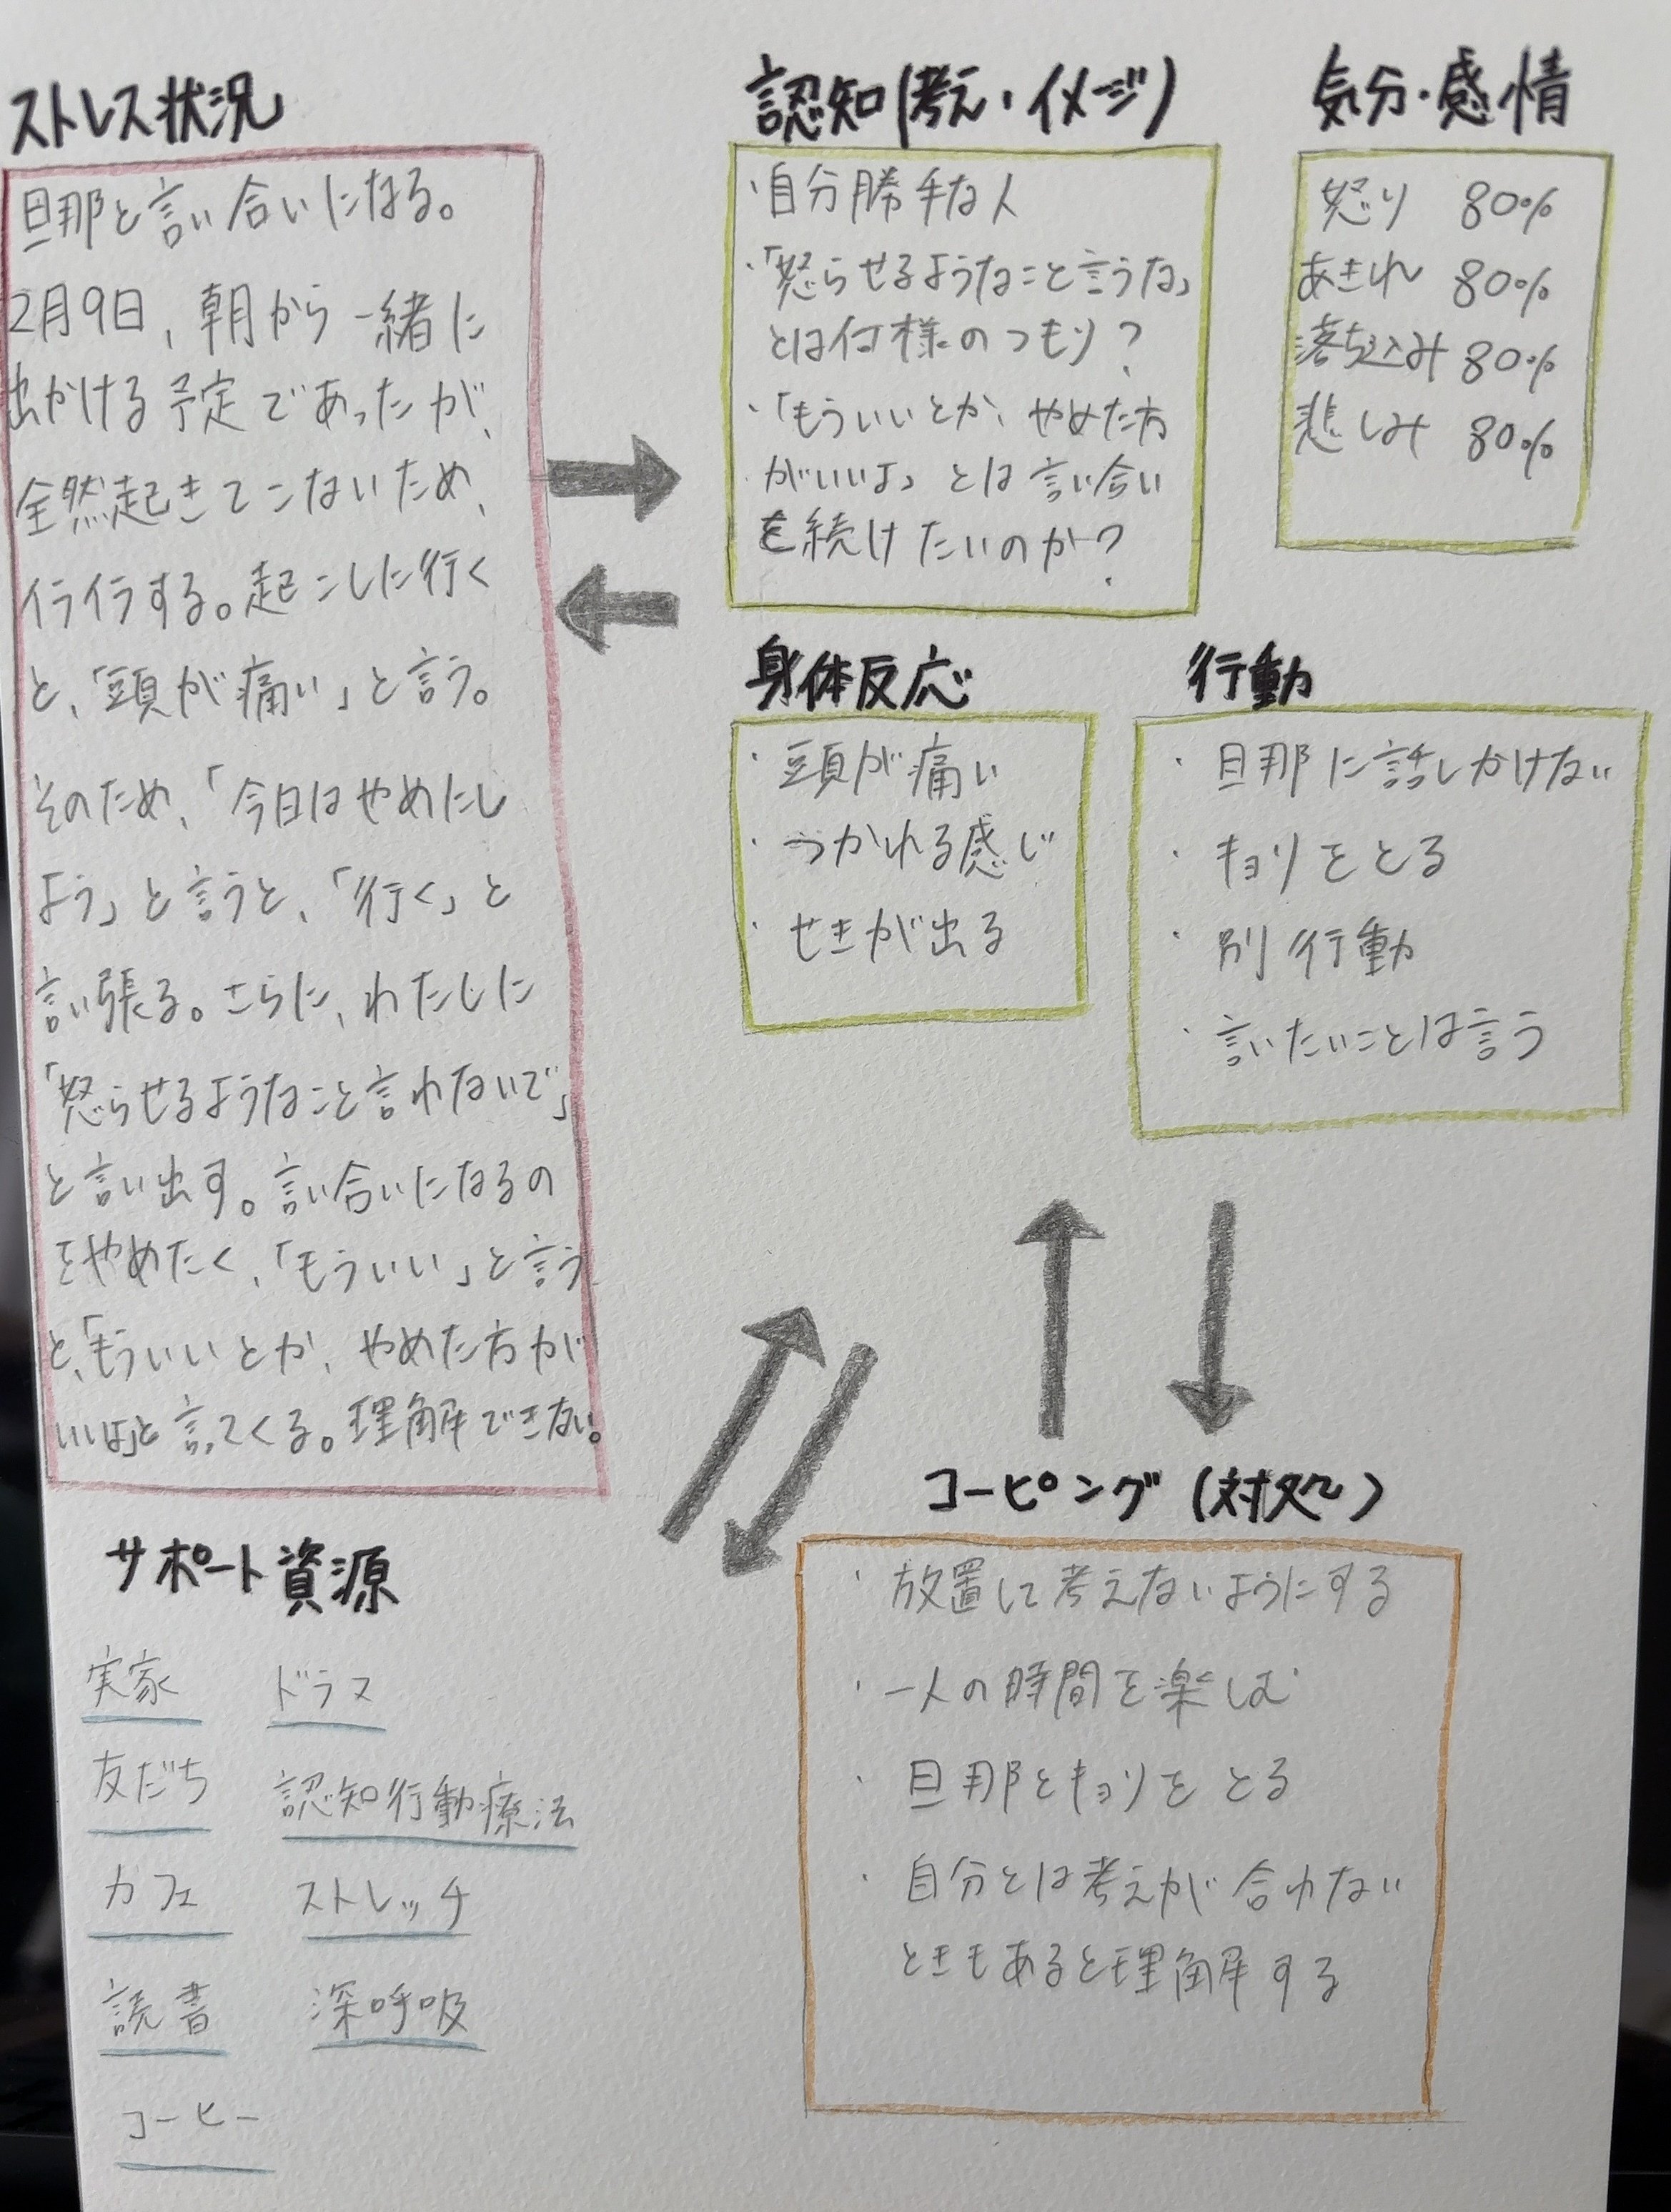 ストレス状況
旦那と言い合いになる。
2月9日、朝から一緒に
出かける予定であったが、
全然起きてこないため、
イライラする。起こしに行く
と、「頭が痛い」と言う。
そのため、「今日はやめにし
よう」と言うと、「行く」と
言い張る。さらに、わたしに
「怒らせるようなこと言わないで」
と言い出す。言い合いになるの
をやめたく、「もういい」と言う
と、「もういいとか、やめた方が
いいよ」と言ってくる。理解できない。
認知(考え・イメージ)
・自分勝手な人
・「怒らせるようなこと言うな」
とは何様のつもり？
・「もういいとか、やめた方
がいいよ」とは言い合い
を続けたいのか？
気分・感情
怒り 80%
あきれ 80%
落ち込み 80%
悲しみ 80%
身体反応
・頭が痛い
・つかれる感じ
・せきが出る
行動
・旦那に話しかけない
・キョリをとる
・別行動
・言いたいことは言う
サポート資源
実家 ドラマ
友だち 認知行動療法
カフェ ストレッチ
読書 深呼吸
コーヒー
コーピング(対処)
・放置して考えないようにする
・一人の時間を楽しむ
・旦那とキョリをとる
・自分とは考えが合わない
ときもあると理解する